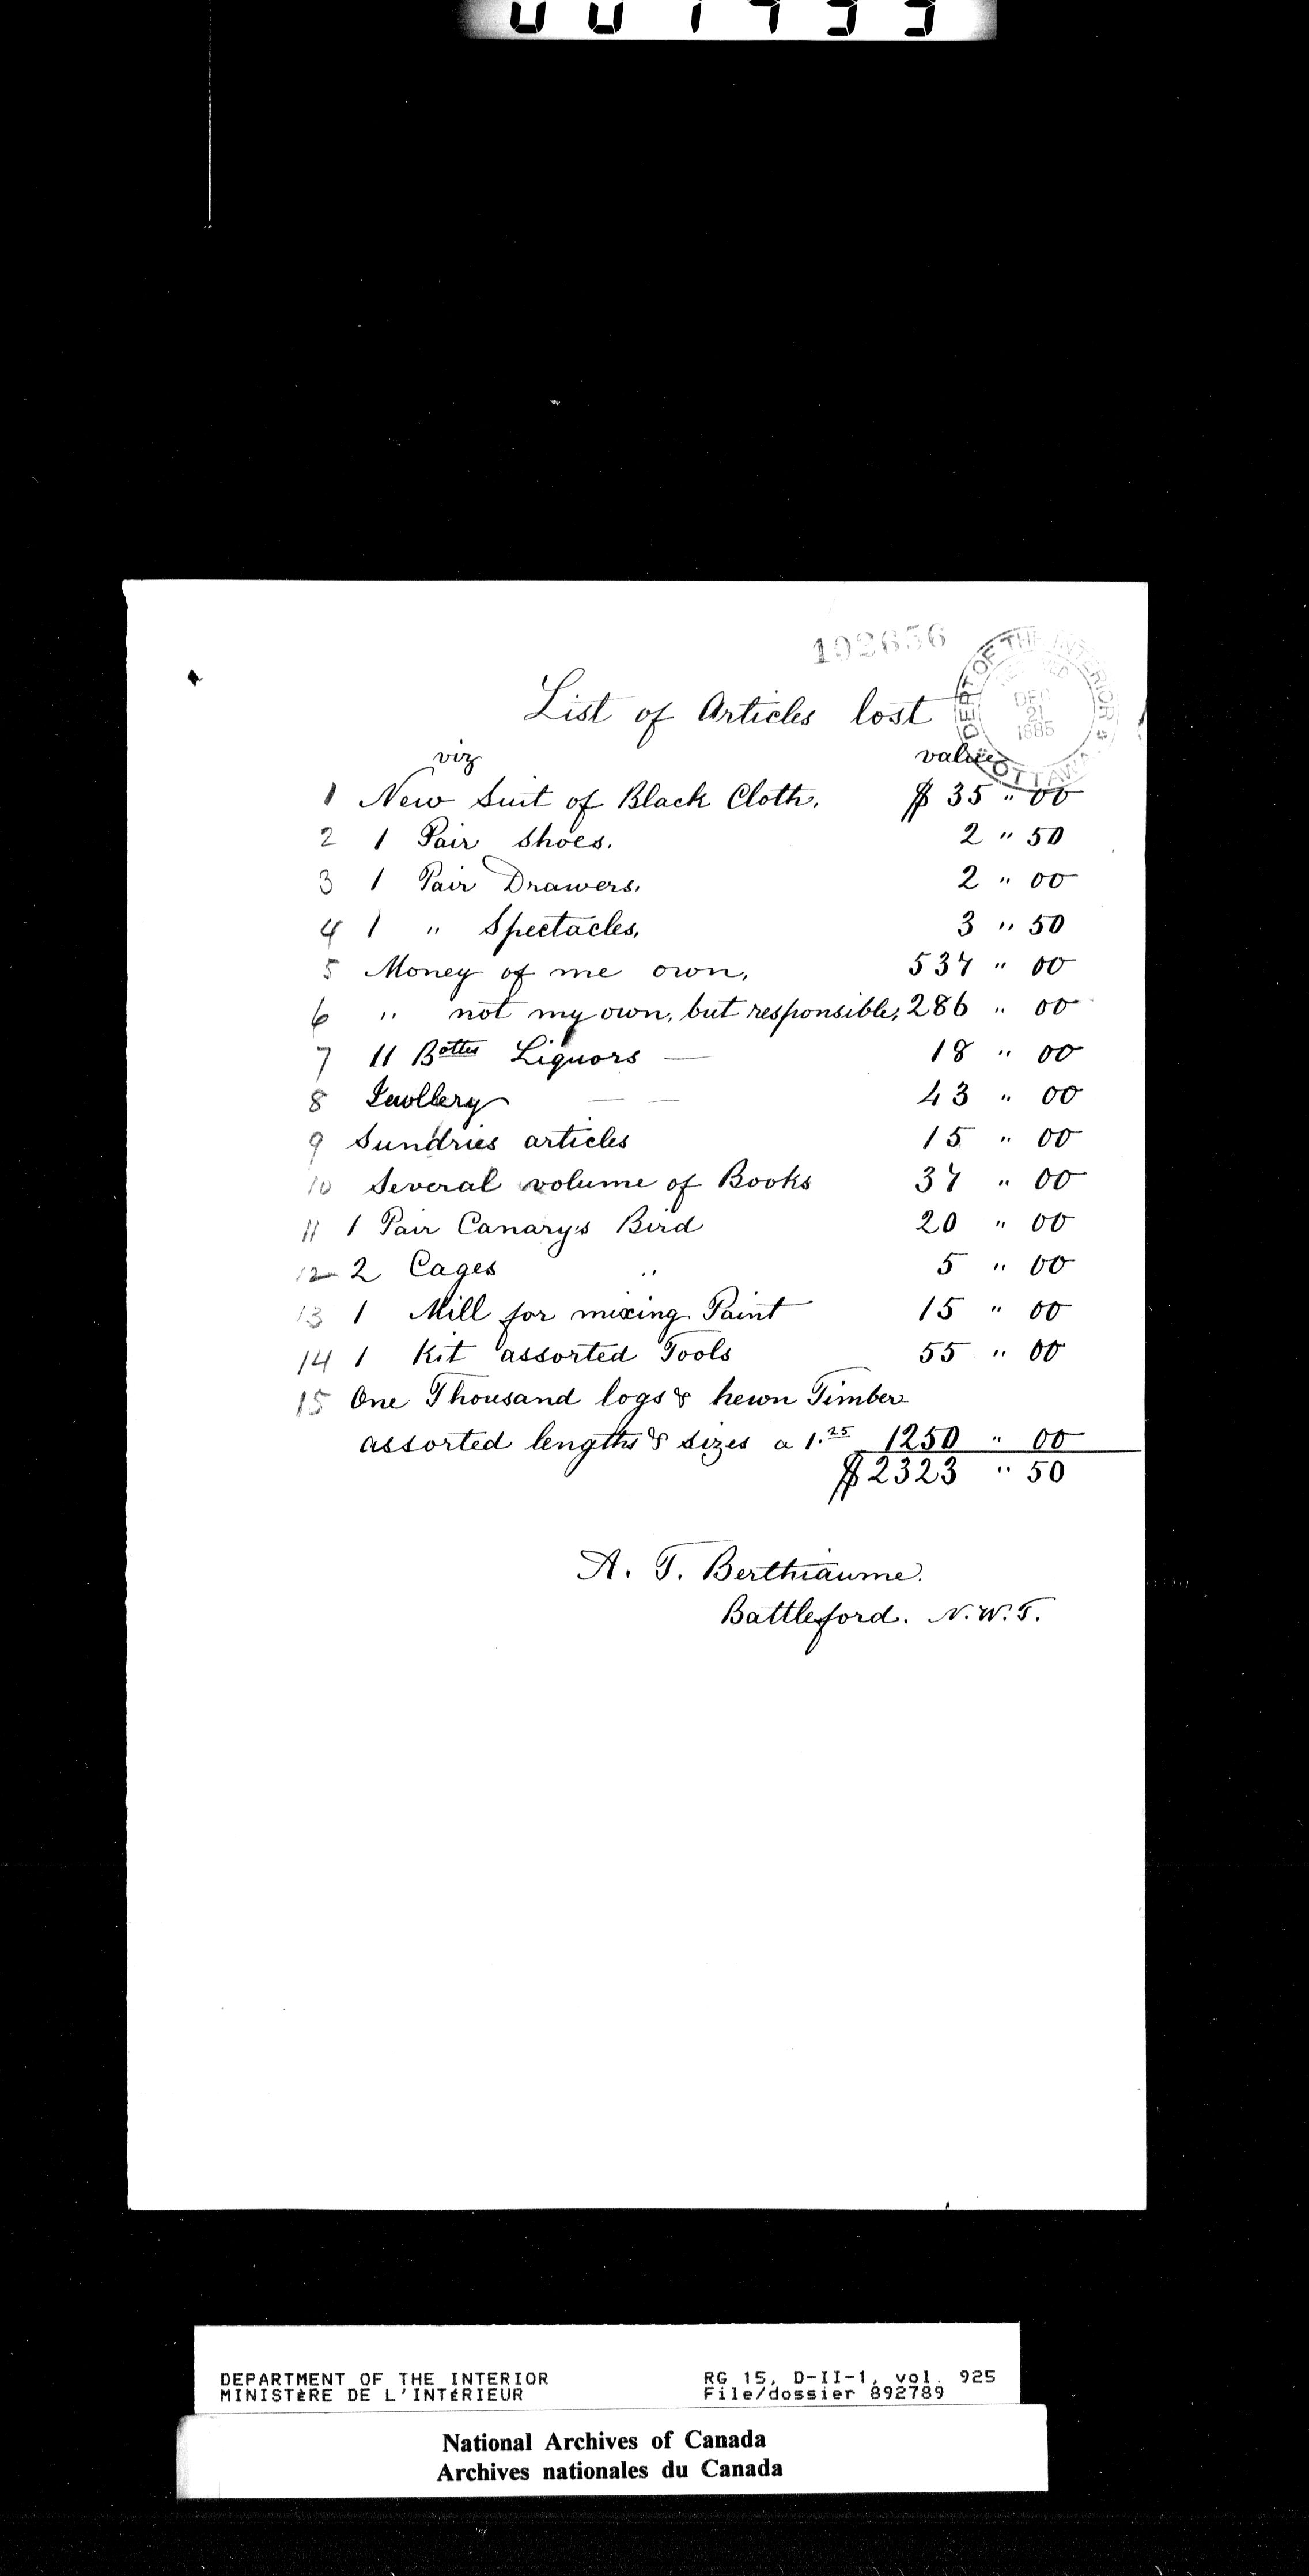 102656
DEPT OF THE INTERIOR
RECEIVED
DEC
21
1885
OTTAWA
List of Articles lost
viz value
1 New Suit of Black Cloth, $ 35 " 00
2 1 Pair Shoes. 2 " 50
3 1 Pair Drawers, 2 " 00
4 1 " Spectacles, 3 " 50
5 Money of me own, 537 " 00
6 " not my own, but responsible, 286 " 00
7 11 Bottes Liquors — 18 " 00
8 Jewllery — — 43 " 00
9 Sundries articles 15 " 00
10 Several volume of Books 37 " 00
11 1 Pair Canary's Bird 20 " 00
12 2 Cages " 5 " 00
13 1 Mill for mixing Paint 15 " 00
14 1 Kit assorted Tools 55 " 00
15 One Thousand logs & hewn Timber
assorted lengths & sizes a 1.25 1250 " 00
$ 2323 " 50
A. T. Berthiaume.
Battleford. N.W.T.
DEPARTMENT OF THE INTERIOR RG 15, D-II-1, vol. 925
MINISTÈRE DE L'INTÉRIEUR File/dossier 892789
National Archives of Canada
Archives nationales du Canada